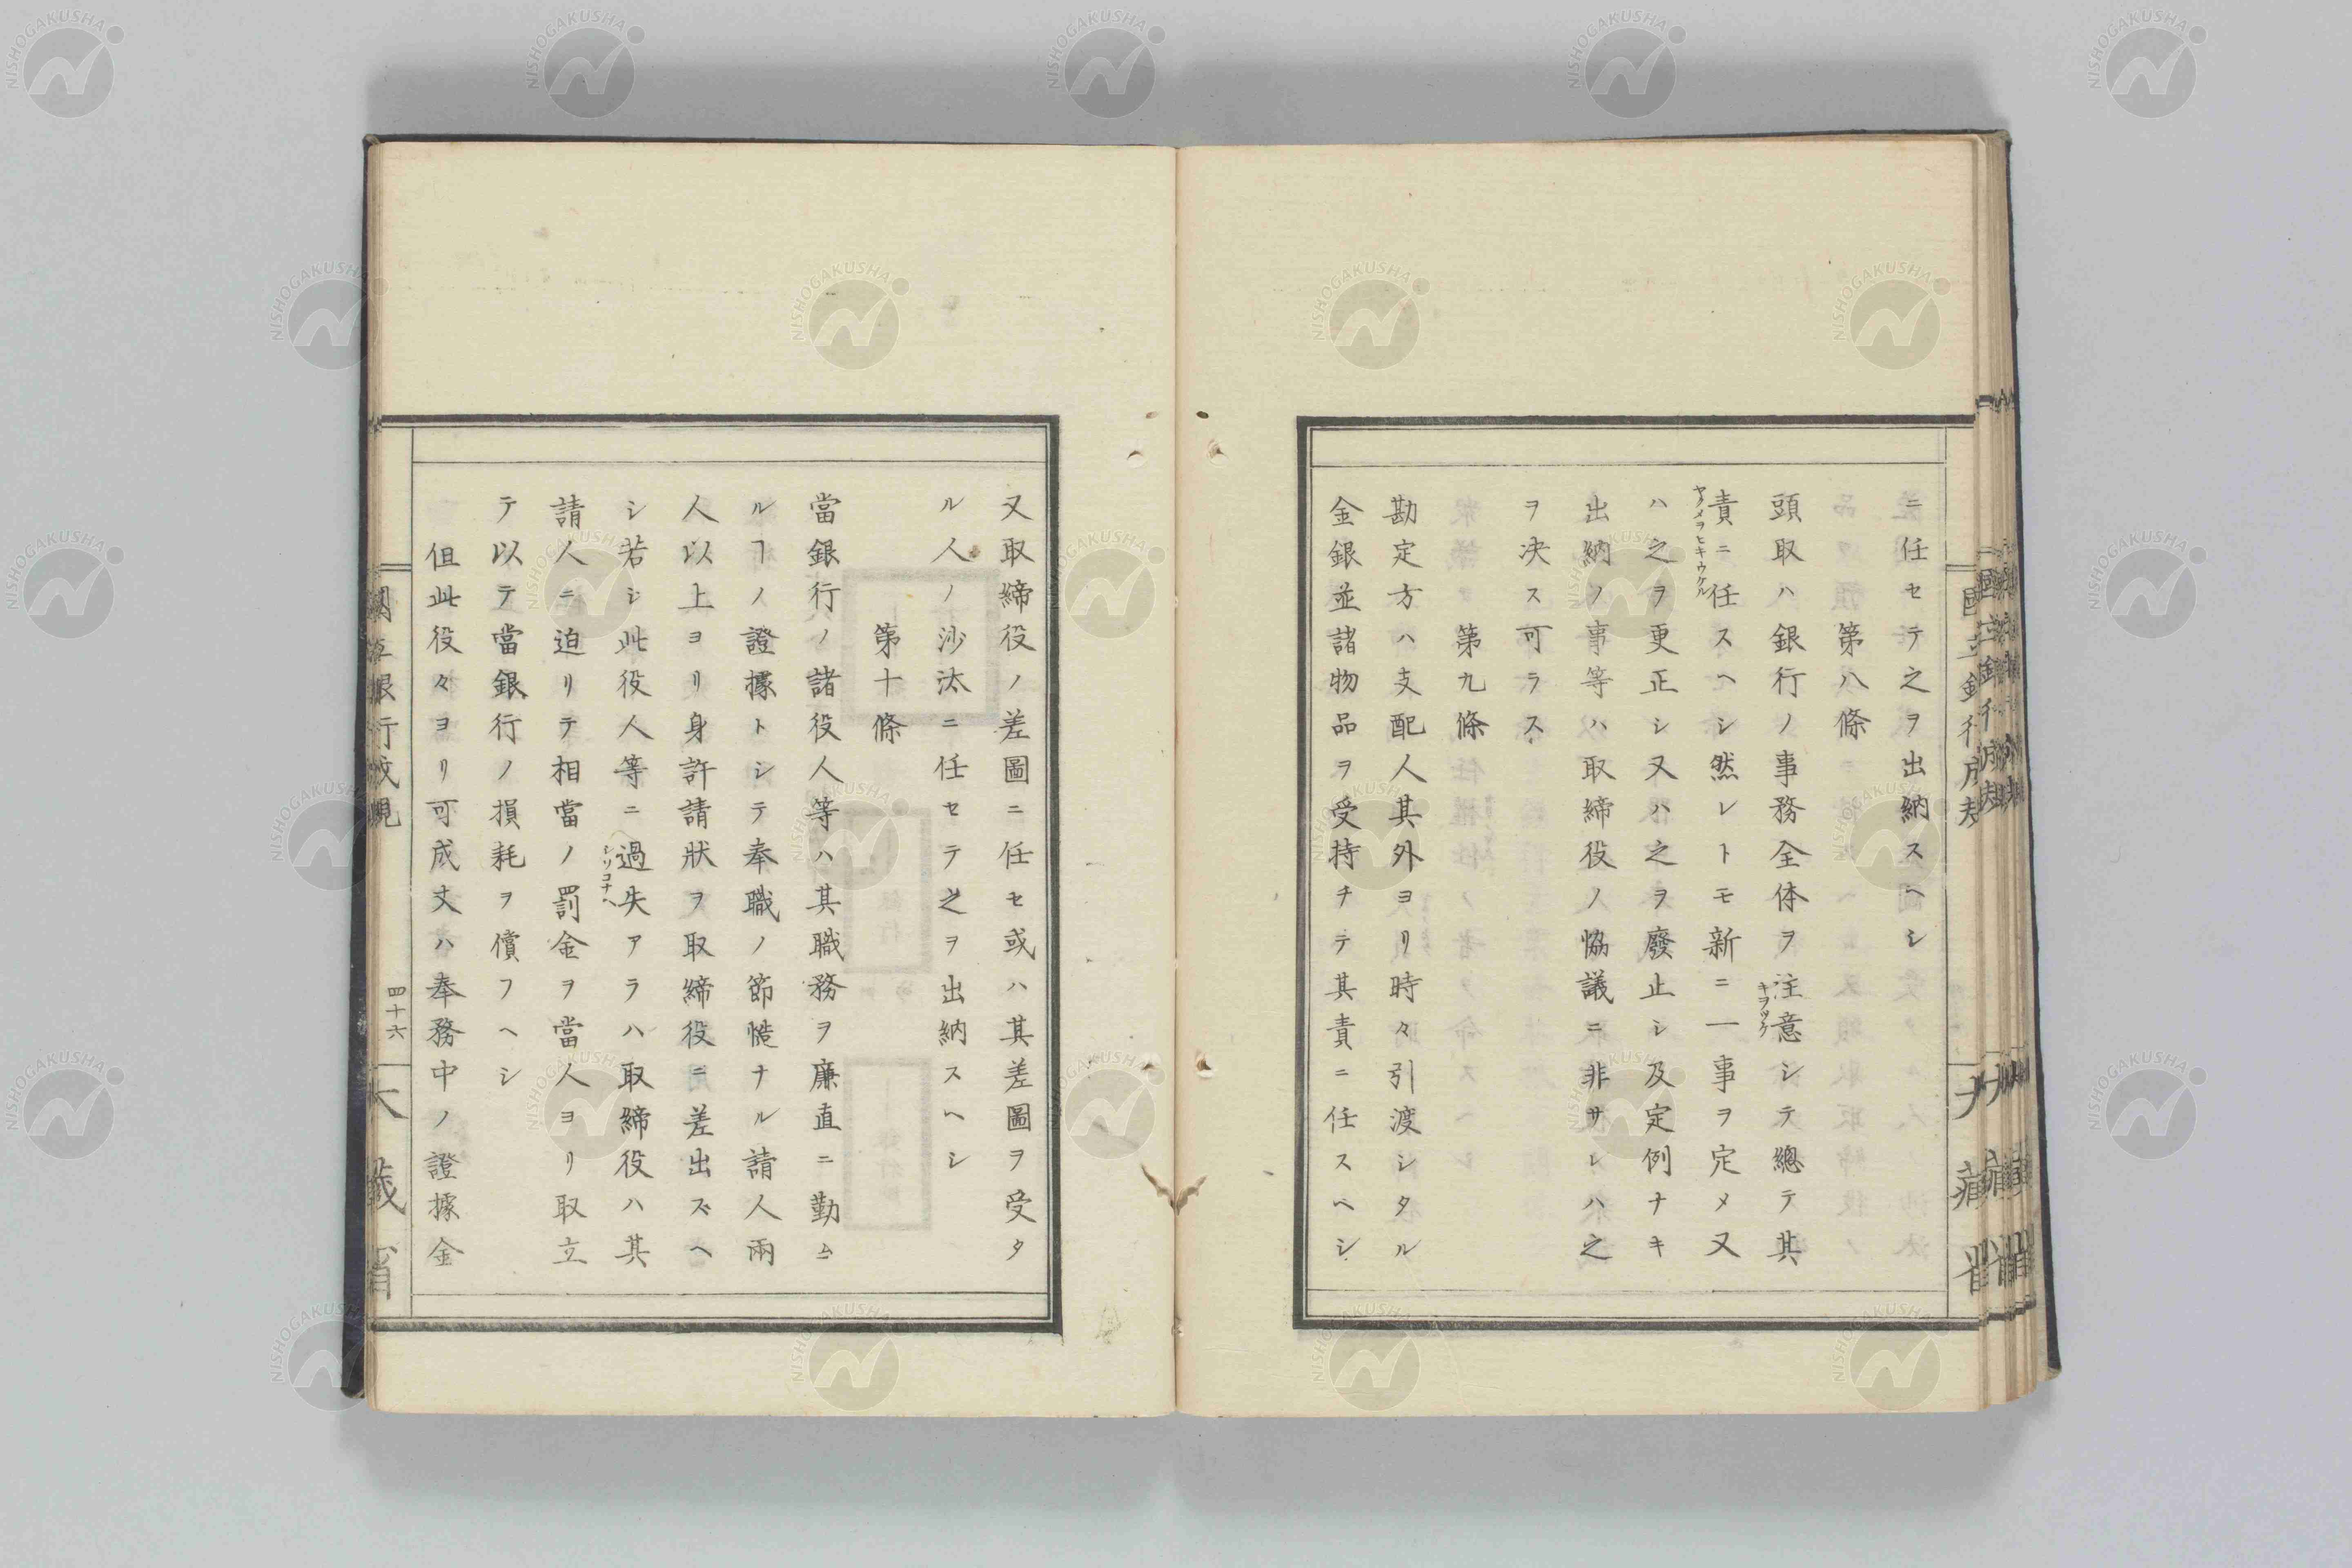 ニ任セテ之ヲ出納スヘシ
第八條
頭取ハ銀行ノ事務全体ヲ注意シテ總テ其
キヲツケ
責ニ任スヘシ然レトモ新ニ一事ヲ定メ又
ヤクメヲヒキウケル
ハ之ヲ更正シ又ハ之ヲ廢止シ及定例ナキ
出納ノ事等ハ取締役ノ恊議ニ非サレハ之
ヲ决ス可ラス
第九條
勘定方ハ支配人其外ヨリ時々引渡シタル
金銀並諸物品ヲ受持チテ其責ニ任スベシ
又取締役ノ差圖ニ任セ或ハ其差圖ヲ受タ
ル人ノ沙汰ニ任セテ之ヲ出納スヘシ
第十條
當銀行ノ諸役人等ハ其職務ヲ廉直ニ勤ム
ルヿノ證據トシテ奉職ノ節慥ナル請人兩
人以上ヨリ身許請狀ヲ取締役ニ差出スヘ
シ若シ此役人等ニ過失アラハ取締役ハ其
シソコナヘ
請人ニ迫リテ相當ノ罰金ヲ當人ヨリ取立
テ以テ當銀行ノ損耗ヲ償フヘシ
但此役々ヨリ可成丈ハ奉務中ノ證據金
四十六
大藏省
NISHOGAKUSHA